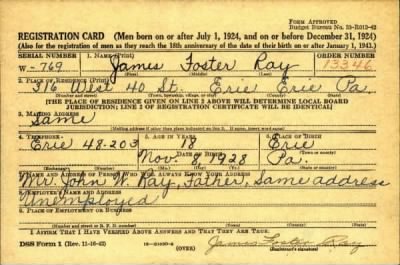 FORM APPROVED
Budget Bureau No. 33-R013-42
REGISTRATION CARD (Men born on or after July 1, 1924, and on or before December 31, 1924)
(Also for the registration of men as they reach the 18th anniversary of the date of their birth on or after January 1, 1943.)
SERIAL NUMBER 1. NAME (Print) ORDER NUMBER
W-769 James Foster Ray 13346
2. PLACE OF RESIDENCE (Print)
316 West 40 St. Erie Erie Pa.
[THE PLACE OF RESIDENCE GIVEN ON LINE 2 ABOVE WILL DETERMINE LOCAL BOARD
JURISDICTION; LINE 2 OF REGISTRATION CERTIFICATE WILL BE IDENTICAL]
3. MAILING ADDRESS
Same
4. TELEPHONE 5. AGE IN YEARS 6. PLACE OF BIRTH
Erie 48-203 18 Erie
DATE OF BIRTH
Nov. 8, 1928 Pa.
7. NAME AND ADDRESS OF PERSON WHO WILL ALWAYS KNOW YOUR ADDRESS
Mr. John W. Ray, Father, Same address
8. EMPLOYER'S NAME AND ADDRESS
Unemployed
9. PLACE OF EMPLOYMENT OR BUSINESS
I AFFIRM THAT I HAVE VERIFIED ABOVE ANSWERS AND THAT THEY ARE TRUE.
DSS Form 1 (Rev. 11-16-42) (OVER) James Foster Ray
(Registrant's signature)